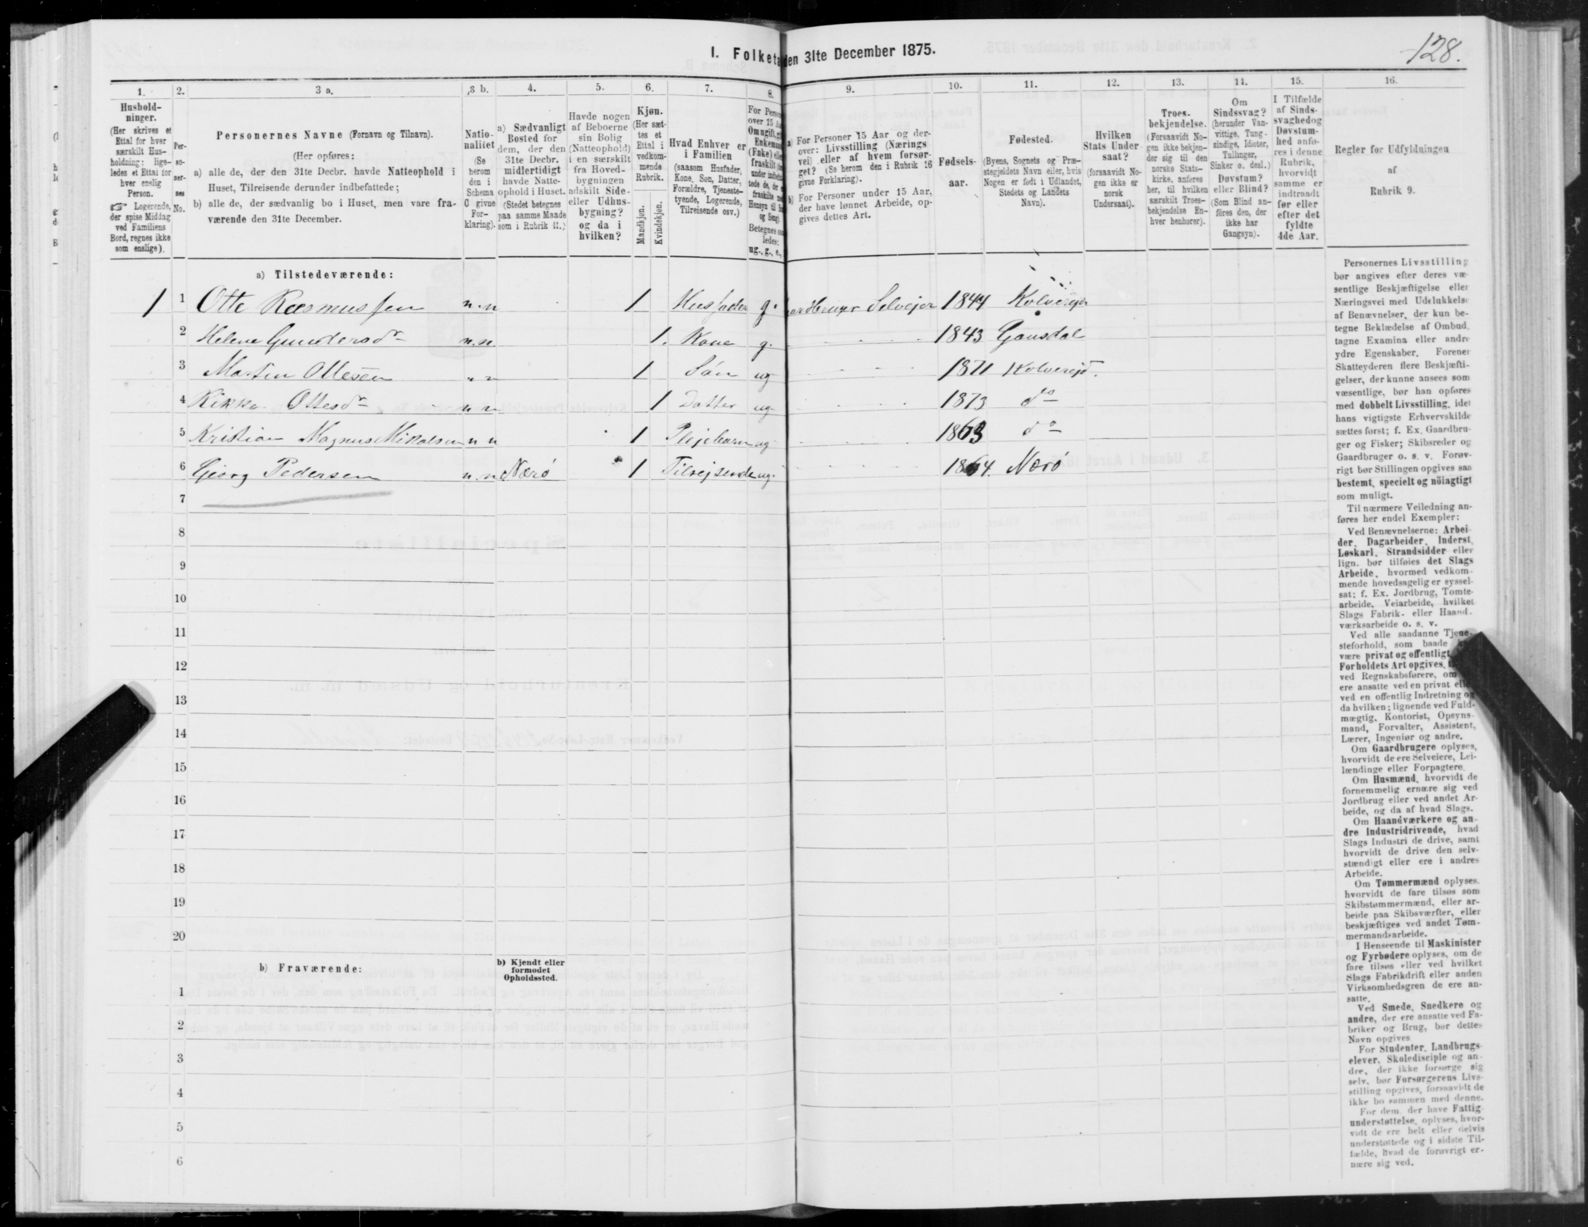 128.
1. Folketa
den 31te December 1875.
1.
2.
3 a.
3 b.
4.
5.
6.
7.
8.
9.
10.
11.
12.
13.
14.
15.
16.
Hushold-
ninger.
(Her skrives et
Ettal for hver
særskilt Hus-
holdning; lige-
ledes et Ettal for
hver enslig
Person.
☞ Logerende,
der spise Middag
ved Familiens
Bord, regnes ikke
som enslige).
Per-
so-
ner-
nes
No.
Personernes Navne (Fornavn og Tilnavn).
(Her opføres:
a) alle de, der den 31te Decbr. havde Natteophold i
Huset, Tilreisende derunder indbefattede;
b) alle de, der sædvanlig bo i Huset, men vare fra-
værende den 31te December.
Natio-
nalitet
(Se
herom
den i
Schema
C givne
For-
klaring).
a) Sædvanligt
Bosted for
dem, der den
31te Decbr.
midlertidigt
havde Natte-
ophold i Huset.
(Stedet betegnes
paa samme Maade
som i Rubrik 11.)
Havde nogen
af Beboerne
sin Bolig
(Natteophold)
i en særskilt
fra Hoved-
bygningen
adskilt Side-
eller Udhus-
bygning?
og da i
hvilken?
Kjøn.
(Her sæt-
tes et
Ettal i
vedkom-
mende
Rubrik.
Mandkjøn.
Kvindekjøn.
Hvad Enhver er
i Familien
(saasom Husfader,
Kone, Søn, Datter,
Forældre, Tjeneste-
tyende, Logerende,
Tilreisende osv.)
For Perso
over 15 Aar
Om ugift, gi
Enkeman
(Enke) elle
fraskilt
ug., g., e.,
a) For Personer 15 Aar og der-
over: Livsstilling (Nærings
vei) eller af hvem forsør-
get? (Se herom den i Rubrik 16
givne Forklaring).
b) For Personer under 15 Aar,
der have lønnet Arbeide, op-
gives dettes Art.
Fødsels-
aar.
Fødested.
(Byens, Sognets og Præ-
stegjeldets Navn eller, hvis
Nogen er født i Udlandet,
Stedets og Landets
Navn).
Hvilken
Stats Under
saat?
(forsaavidt No-
gen ikke er
norsk
Undersaat).
Troes-
bekjendelse.
(Forsaavidt No-
gen ikke bekjen-
der sig til den
norske Stats-
kirke, anføres
her, til hvilken
særskilt Troes-
bekjendelse En-
hver henhører).
Om
Sindssvag?
(herunder Van-
vittige, Tung-
sindige, Idioter,
Tullinger,
Sinker o. desl.)
Døvstum?
eller Blind?
(Som Blind an-
føres den, der
ikke har
Gangsyn).
I Tilfælde
af Sinds-
svaghed og
Døvstum-
hed anfø-
res i denne
Rubrik,
hvorvidt
samme er
indtraadt
før eller
efter det
fyldte
4de Aar.
Regler for Udfyldningen
af
Rubrik 9.
a) Tilstedeværende:
1 1 Otte Rasmussen n. n 1 Husfader g. Selveier 1844 Kolvereid
2 Helene Gundersdr n. n 1. Kone g. 1843 Gansdal
3 Martin Ottesen n n 1 Søn ug 1871 Kolvereid.
4 Rikke Ottesdr n n 1 Datter ug. 1873 do
5 Kristian Magnus Mikalsen n n 1 Plejebarn ug 1863 do
6 Georg Pedersen n. n Nærø 1 Tilrejsende ug. 1864. Nærø
7
8
9
10
11
12
13
14
15
16
17
18
19
20
b) Fraværende:
b) Kjendt eller
formodet
Opholdssted.
1
2
3
4
5
6
Personernes Livsstilling
bør angives efter deres væ-
sentlige Beskjæftigelse eller
Næringsvei med Udelukkelse
af Benævnelser, der kun be-
tegne Beklædelse af Ombud,
tagne Examina eller andre
ydre Egenskaber. Forener
Skatteyderen flere Beskjæfti-
gelser, der kunne ansees som
væsentlige, bør han opføres
med dobbelt Livsstilling, idet
hans vigtigste Erhvervskilde
sættes først; f. Ex. Gaardbru-
ger og Fisker; Skibsreder og
Gaardbruger o. s. v. Forøv-
rigt bør Stillingen opgives saa
bestemt, specielt og nøiagtigt
som muligt.
Til nærmere Veiledning an-
føres her endel Exempler:
Ved Benævnelserne: Arbei-
der, Dagarbeider, Inderst,
Løskarl, Strandsidder eller
lign. bør tilføies det Slags
Arbeide, hvormed vedkom-
mende hovedsagelig er syssel-
sat; f. Ex. Jordbrug, Tomte-
arbeide, Veiarbeide, hvilket
Slags Fabrik- eller Haand-
værksarbeide o. s. v.
Ved alle saadanne Tjene-
steforhold, som baade
være privat og offentligt,
Forholdets Art opgives,
ved Regnskabsførere, om
ere ansatte ved en privat
ved en offentlig Indretning og
da hvilken; lignende ved Fuld-
mægtig, Kontorist, Opsyns-
mand, Forvalter, Assistent,
Lærer, Ingeniør og andre.
Om Gaardbrugere oplyses,
hvorvidt de ere Selveiere, Lei-
lændinge eller Forpagtere.
Om Husmænd, hvorvidt de
fornemmelig ernære sig ved
Jordbrug eller ved andet Ar-
beide, og da af hvad Slags.
Om Haandværkere og an-
dre Industridrivende, hvad
Slags Industri de drive, samt
hvorvidt de drive den selv-
stændigt eller ere i andres
Arbeide.
Om Tømmermænd oplyses,
hvorvidt de fare tilsøs som
Skibstømmermænd, eller ar-
beide paa Skibsværfter, eller
beskjæftiges ved andet Tøm-
mermandsarbeide.
I Henseende til Maskinister
og Fyrbødere oplyses, om de
fare tilsøs eller ved hvilket
Slags Fabrikdrift eller anden
Virksomhedsgren de ere an-
satte.
Ved Smede, Snedkere og
andre, der ere ansatte ved Fa-
briker og Brug, bør dettes
Navn opgives
For Studenter, Landbrugs-
elever, Skoledisciple og an-
dre, der ikke forsørge sig
selv, bør Forsørgerens Livs-
stilling opgives, forsaavidt de
ikke bo sammen med denne.
For dem, der have Fattig-
understøttelse, oplyses, hvor-
vidt de ere helt eller delvis
understøttede og i sidste Til-
fælde, hvad de forøvrigt er-
nære sig ved.